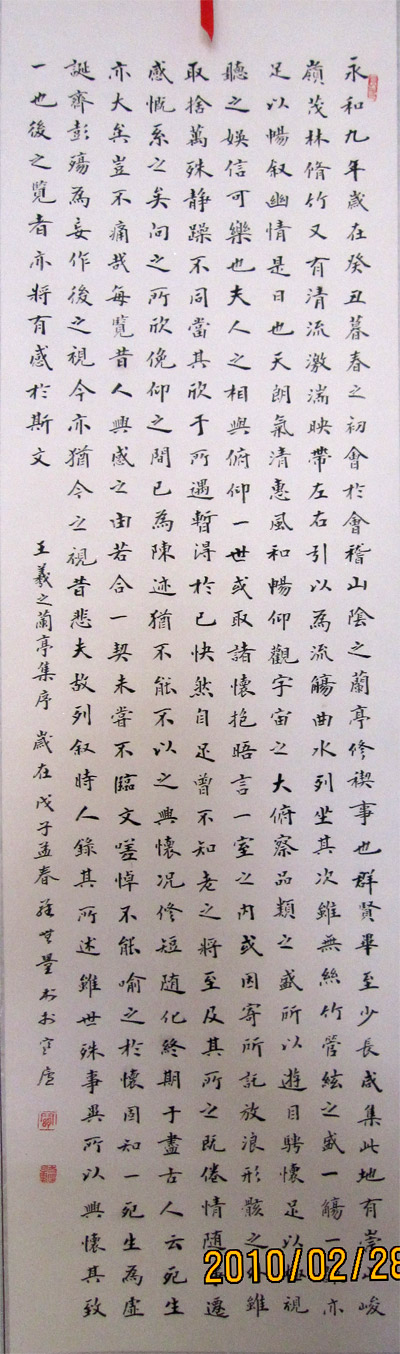 永和九年歲在癸丑暮春之初會於會稽山陰之蘭亭修禊事也群賢畢至少長咸集此地有崇峻
嶺茂林脩竹又有清流激湍映帶左右引以為流觴曲水列坐其次雖無絲竹管絃之盛一觴一亦
足以暢叙幽情是日也天朗氣清惠風和暢仰觀宇宙之大俯察品類之盛所以遊目騁懷足以視
聽之娛信可樂也夫人之相與俯仰一世或取諸懷抱晤言一室之內或因寄所託放浪形骸之雖
取捨萬殊静躁不同當其欣于所遇暫得於己快然自足曾不知老之將至及其所之既倦情随遷
感慨系之矣向之所欣俛仰之間已為陳迹猶不能不以之興懷况修短随化終期于盡古人云死生
亦大矣豈不痛哉每覽昔人興感之由若合一契未嘗不臨文嗟悼不能喻之於懷固知一死生為虛
誕齊彭殤為妄作後之視今亦猶今之視昔悲夫故列叙時人錄其所述雖世殊事異所以興懷其致
一也後之覽者亦將有感於斯文
王羲之蘭亭集序 歲在戊子孟春
2010/02/28